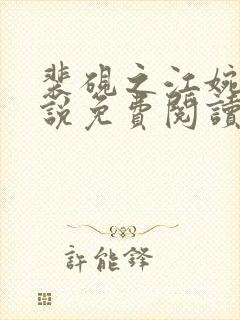 裴硯之江婉
說免費閱讀
許能鋒